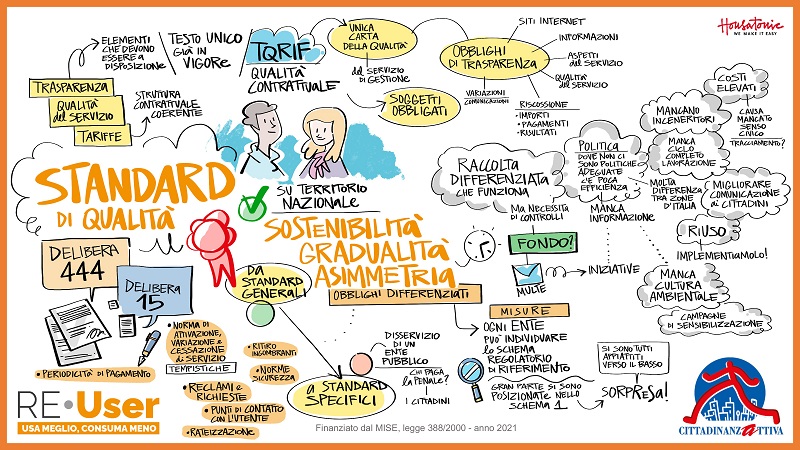 ELEMENTI
CHE DEVONO
ESSERE A
DISPOSIZIONE
TESTO UNICO
GIÀ IN
VIGORE
TQRIF
QUALITÀ
CONTRATTUALE
UNICA
CARTA
DELLA QUALITÀ
DEL SERVIZIO
DI GESTIONE
SOGGETTI
OBBLIGATI
OBBLIGHI
DI TRASPARENZA
SITI INTERNET
INFORMAZIONI
ASPETTI
DEL SERVIZIO
QUALITÀ
DEL SERVIZIO
VARIAZIONI
COMUNICAZIONI
RISCOSSIONE
• IMPORTI
• PAGAMENTI
• RISULTATI
Housatonic
WE MAKE IT EASY
TRASPARENZA
QUALITÀ
DEL SERVIZIO
TARIFFE
STRUTTURA
CONTRATTUALE
COERENTE
STANDARD
DI QUALITÀ
SU TERRITORIO
NAZIONALE
SOSTENIBILITÀ
GRADUALITÀ
ASIMMETRIA
OBBLIGHI DIFFERENZIATI
RACCOLTA
DIFFERENZIATA
CHE FUNZIONA
MA NECESSITA
DI CONTROLLI
FONDO?
MULTE
INIZIATIVE
POLITICA
DOVE NON CI
SONO POLITICHE
ADEGUATE
C'È POCA
EFFICIENZA
MANCA
INFORMAZIONE
MANCANO
INCENERITORI
MANCA
CICLO
COMPLETO
LAVORAZIONE
MOLTA
DIFFERENZA
TRA ZONE
D'ITALIA
COSTI
ELEVATI
CAUSA
MANCATO
SENSO
CIVICO
TRACCIAMENTO?
MIGLIORARE
COMUNICAZIONE
ai CITTADINI
RIUSO
IMPLEMENTIAMOLO!
MANCA
CULTURA
AMBIENTALE
CAMPAGNE
DI SENSIBILIZZAZIONE
DELIBERA
444
DELIBERA
15
• PERIODICITÀ DI PAGAMENTO
• NORMA DI
ATTIVAZIONE,
VARIAZIONE E
CESSAZIONE
DI SERVIZIO
TEMPISTICHE
• RECLAMI E
RICHIESTE
• PUNTI DI CONTATTO
CON L'UTENTE
• RATEIZZAZIONE
• RITIRO
INGOMBRANTI
• NORME
SICUREZZA
DA
STANDARD
GENERALI
A STANDARD
SPECIFICI
DISSERVIZIO
DI UN
ENTE
PUBBLICO
CHI PAGA
LA PENALE?
I CITTADINI
MISURE
OGNI ENTE
PUO' INDIVIDUARE
LO SCHEMA
REGOLATORIO
DI RIFERIMENTO
GRAN PARTE SI SONO
POSIZIONATE NELLO
SCHEMA 1
SI SONO TUTTI
APPIATTITI
VERSO IL BASSO
SORPRESA!
RE•User
USA MEGLIO, CONSUMA MENO
Finanziato dal MISE, legge 388/2000 - anno 2021
CITTADINANZATTIVA